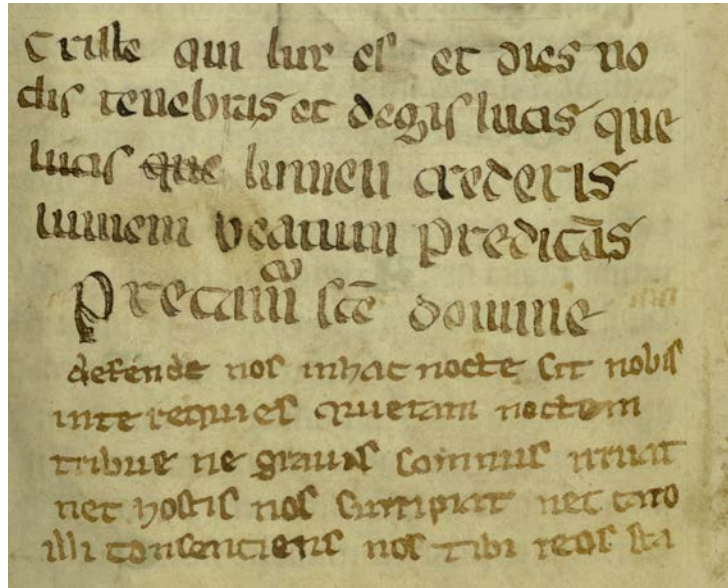 Criste qui lux es et dies no
ctis tenebras et degis lucis que
lucis que lumen crederis
lumem beatum predicãs
Precamur sc̃e domine
defende nos in hac nocte sit nobis
in te requies quietam noctem
tribue ne gravis somnus irruat
nec hostis nos surripiat nec caro
illi consenciens nos tibi reos sta